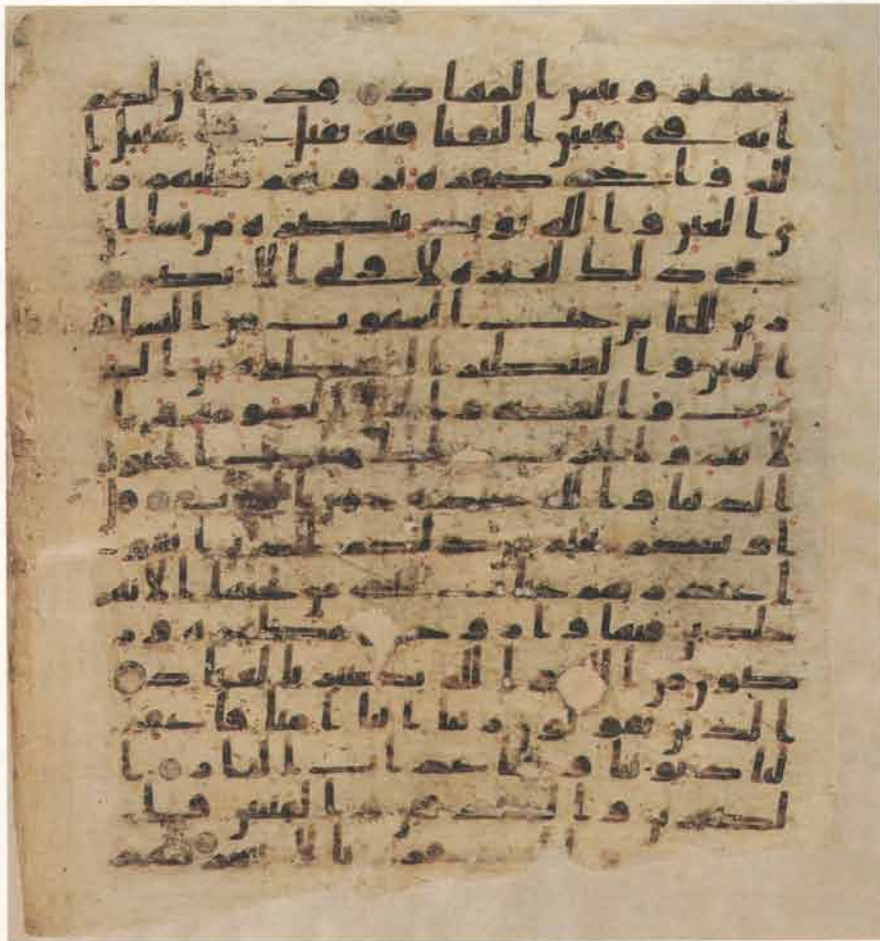 جهنم وبئس المهاد قد كان لكم
اية في فئتين التقتا فئة تقتل في سبيل ا
لله واخرى كافرة يرونهم مثليهم را
ي العين والله يؤيد بنصره من يشا ان
في ذلك لعبرة لاولي الابصر
زين للناس حب الشهوت من النسا و
البنين والقنطير المقنطرة من الذ
هب والفضة والخيل المسومة وا
لانعم والحرث ذلك متع الحيوة
الدنيا والله عنده حسن الماب قل
اونبئكم بخير من ذلكم للذين اتقو
ا عند ربهم جنت تجري من تحتها الانهر
خلدين فيها وازوج مطهرة ور
ضون من الله والله بصير بالعباد
الذين يقولون ربنا اننا امنا فاغفر
لنا ذنوبنا وقنا عذاب النار ا
لصبرين والصدقين والقنتين وا
بالاسحر شهد